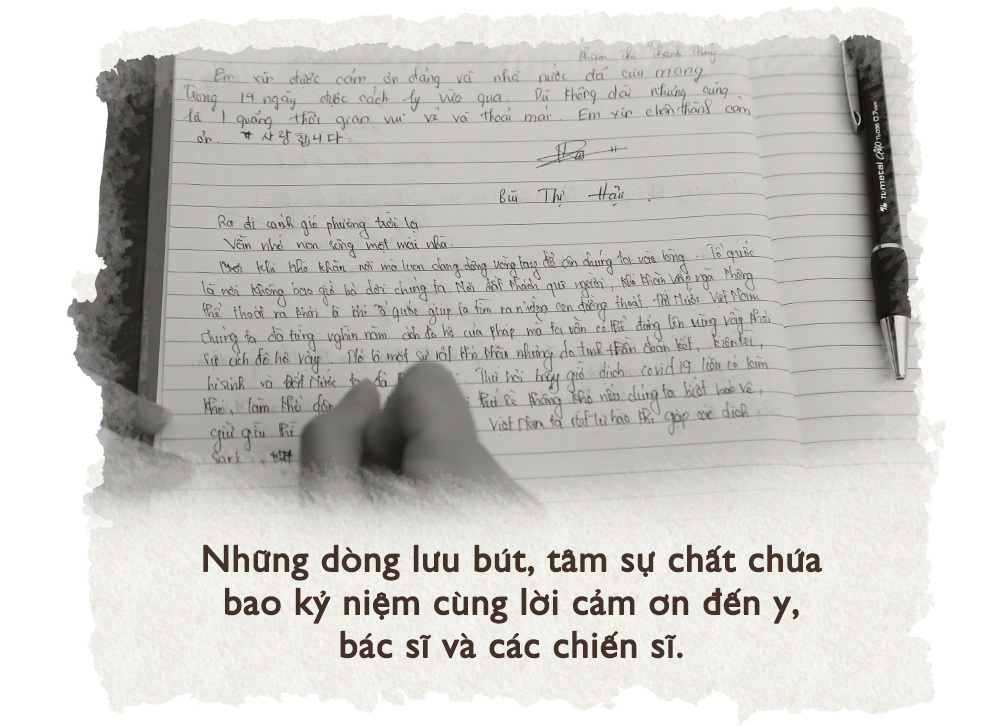 Phạm Thị Thanh Thủy
Em xin được cám ơn đảng và nhà nước đã cưu mang
Trong 14 ngày được cách ly vừa qua. Dù không dài nhưng cũng
là 1 quảng thời gian vui vẻ và thoải mái. Em xin chân thành cảm
ơn. # 사랑합니다.
Bùi Thị Hậu.
Ra đi canh gió phương trời lạ
Vẫn nhớ non sông một mái nhà.
khi khó khăn nơi mà luôn dang rộng vòng tay để ôm chúng ta vào lòng. Tổ quốc
là nơi không bao giờ bỏ rơi chúng ta. Nơi đất khách quê người, khó khăn vấp ngã không
thể thoát ra khỏi ô thì tổ quốc giúp ta tìm ra những con đường thoát. Đất Nước Việt Nam
chúng ta đã từng nghìn năm đô hộ của pháp mà ta vẫn có thể đứng lên vững vàng khỏi
sự đô hộ vậy. Đó là một sự rất khó khăn nhưng do tinh thần đoàn kết, kiên trì,
hi sinh và đất Nước ta đã Thử hỏi bây giờ dịch covid 19 liệu có làm
khó, làm khổ dân thì sẽ không khó nếu chúng ta biết bảo vệ,
giữ gìn thì Việt Nam ta rất tự hào khi gặp các dịch
Sart.
TL-metal CAO TL-036 0.7mm
Những dòng lưu bút, tâm sự chất chứa
bao kỷ niệm cùng lời cảm ơn đến y,
bác sĩ và các chiến sĩ.